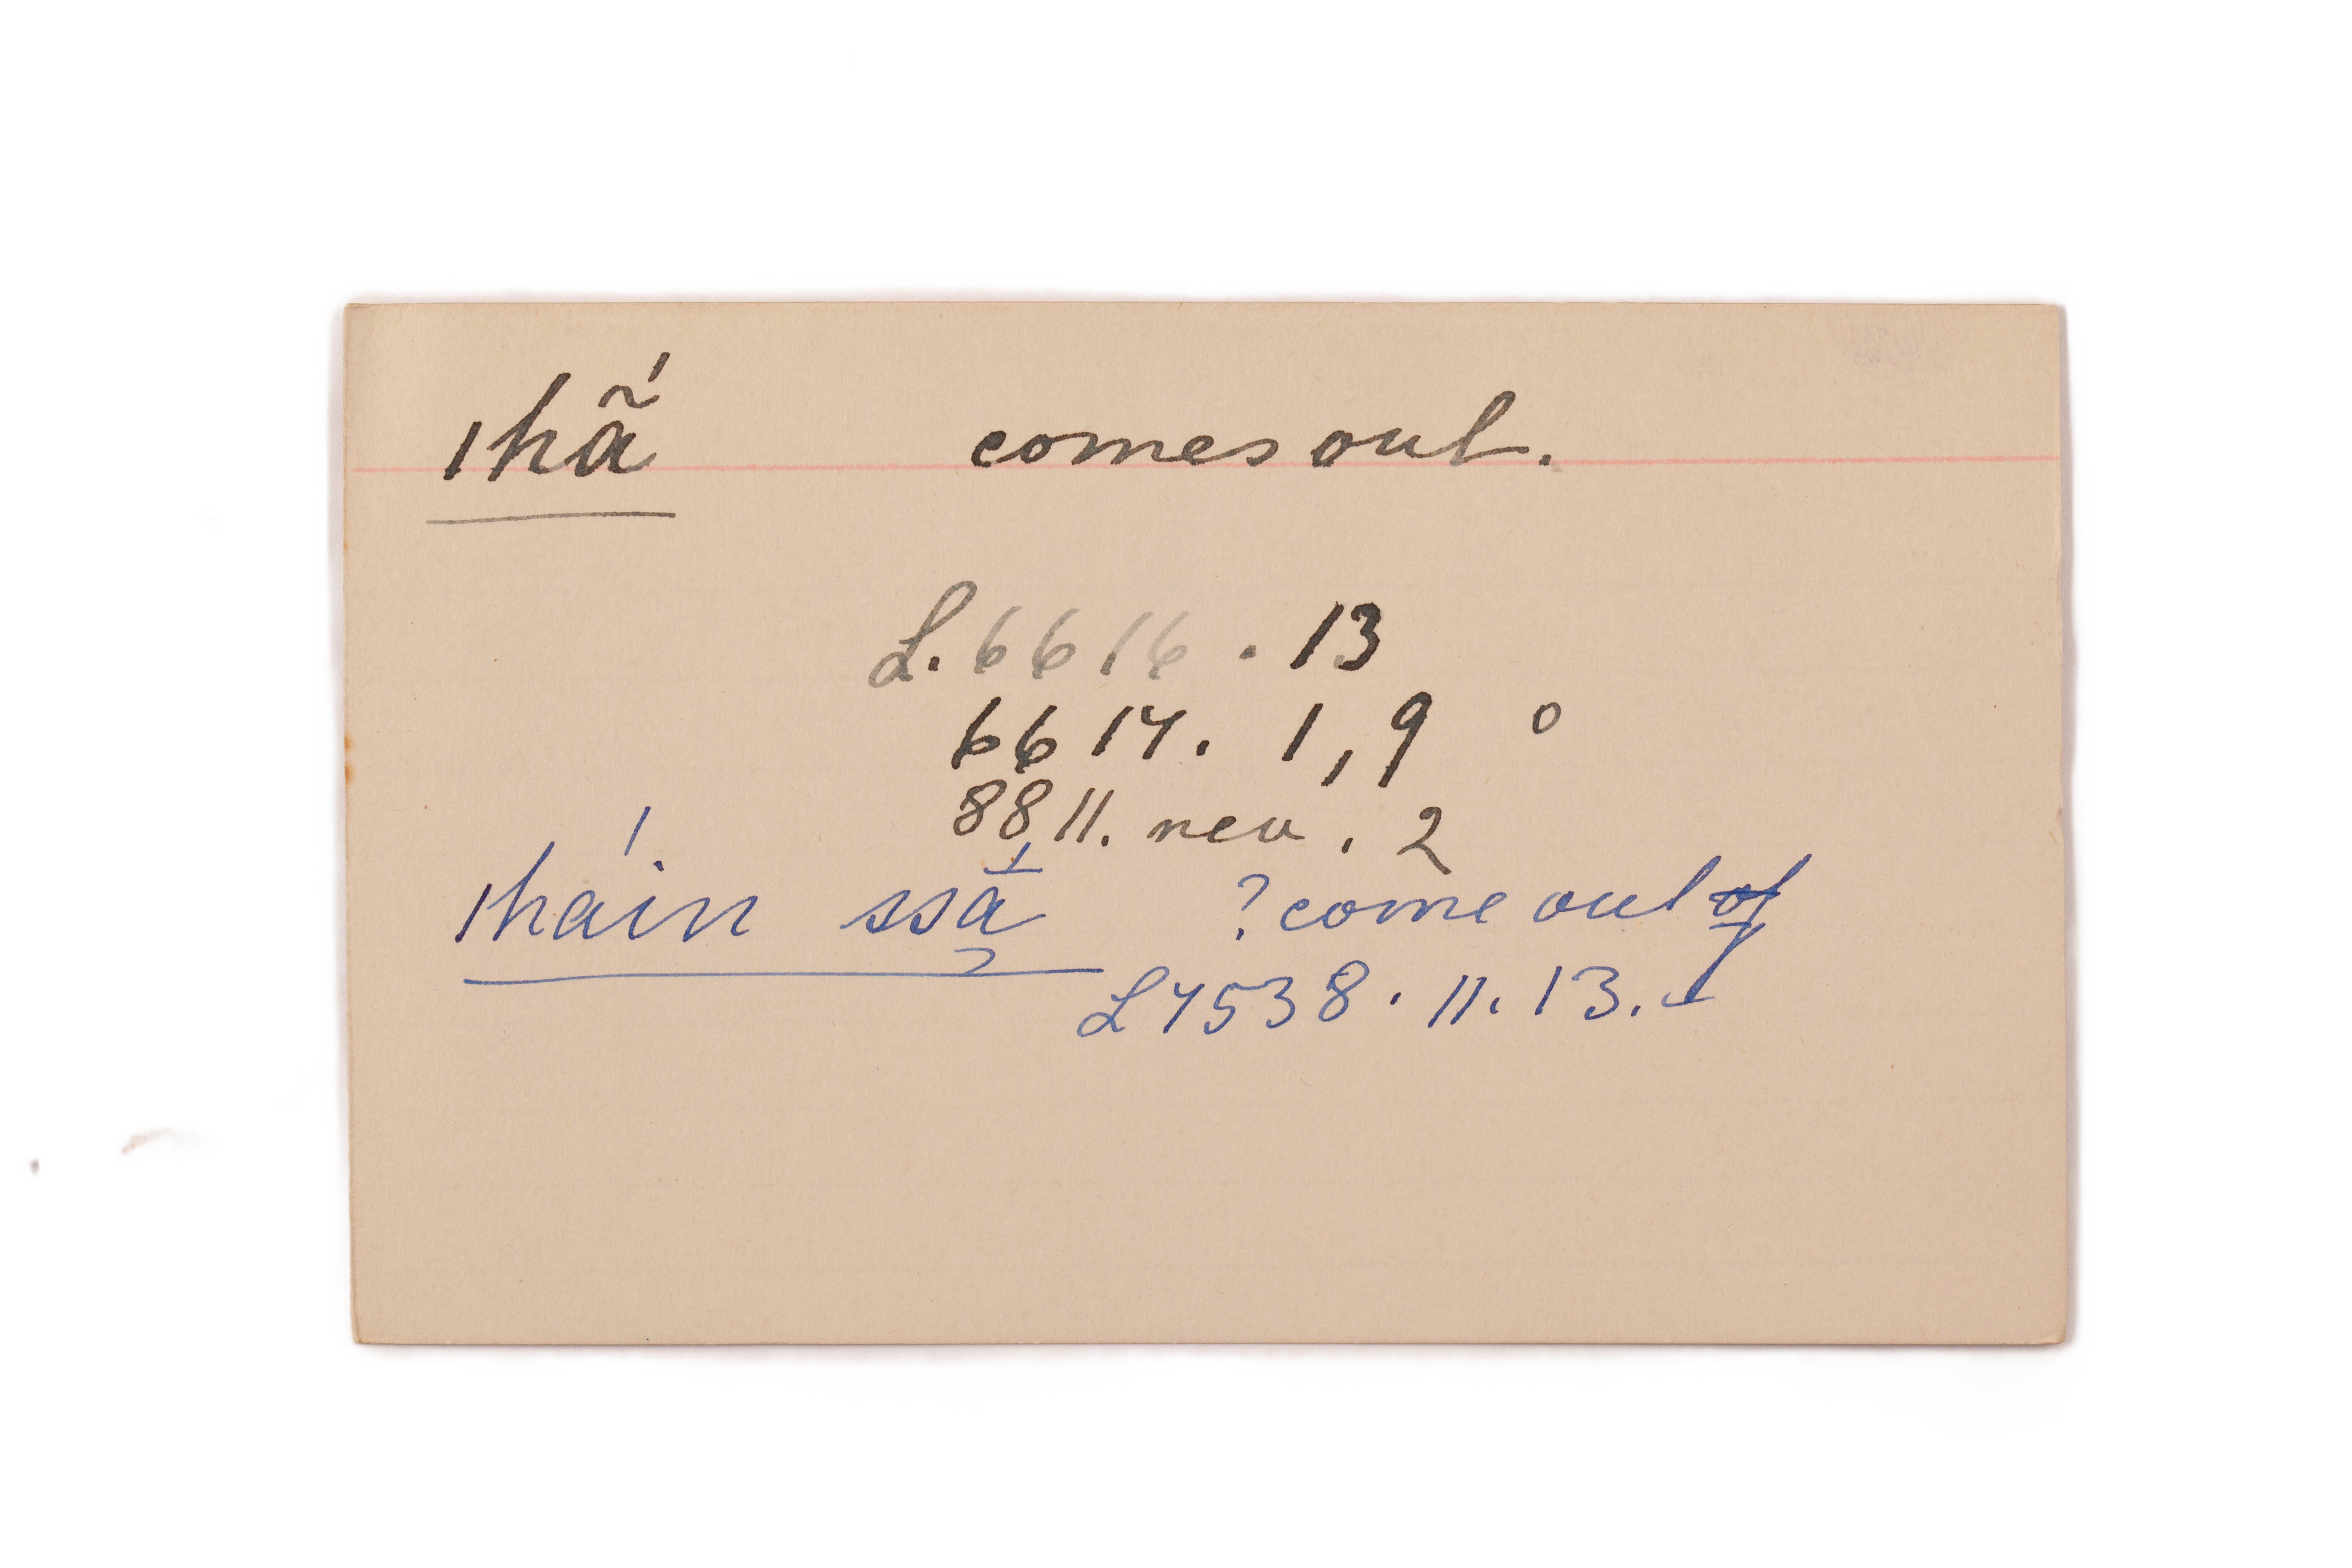 ǀhã́ comes out.
L. 6616 . 13
6617. 1, 9 o
8811. rev. 2
ǀháin ssā̗́ ? come out of
L7538. 11. 13.